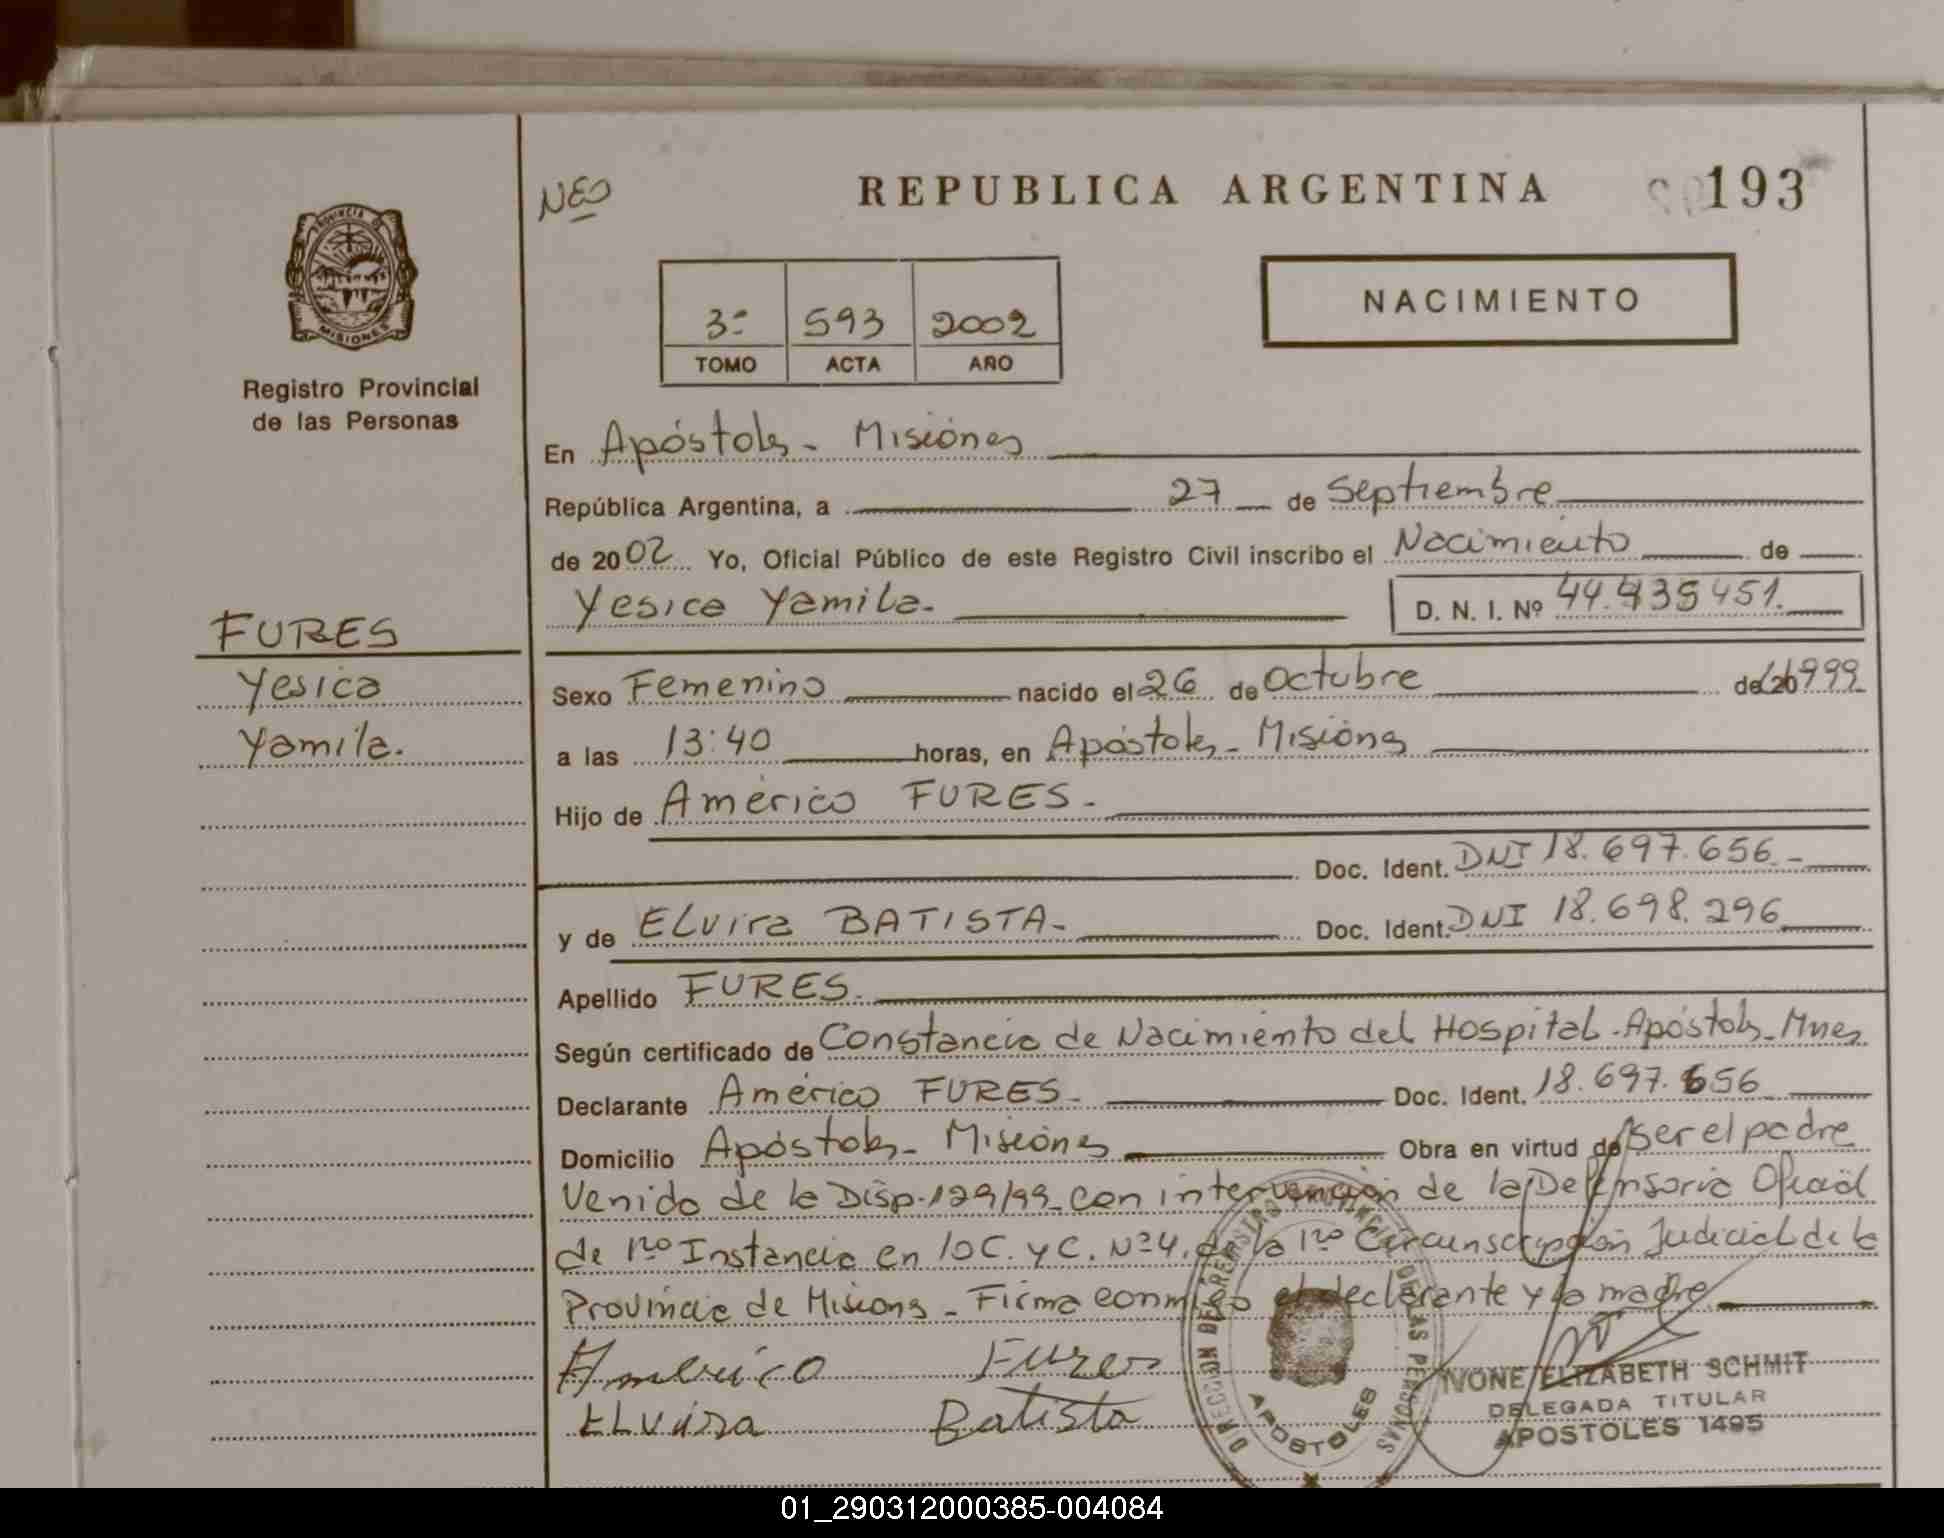 NEO
REPUBLICA ARGENTINA
193
PROVINCIA DE
MISIONES
Registro Provincial
de las Personas
3º 593 2002
TOMO ACTA AÑO
NACIMIENTO
En Apóstoles - Misiones
República Argentina, a 27 de Septiembre
de 2002 Yo, Oficial Público de este Registro Civil inscribo el Nacimiento de
Yesica Yamila.
D. N. I. Nº 44.435451.
FURES
Yesica
Yamila.
Sexo Femenino nacido el 26 de Octubre de 1999
a las 13:40 horas, en Apóstoles - Misiones
Hijo de Américo FURES.
Doc. Ident. DNI 18.697.656
y de Elvira BATISTA. Doc. Ident. DNI 18.698.296
Apellido FURES.
Según certificado de Constancia de Nacimiento del Hospital. Apóstoles. Mnes
Declarante Américo FURES. Doc. Ident. 18.697.656
Domicilio Apóstoles - Misiones Obra en virtud de ser el padre
Venido de la Disp. 129/99 con intervención de la Defensoria Oficial
de 1ro Instancia en lo C. y C. Nº4. de la 1ro Circunscripción Judicial de la
Provincia de Misiones - Firma conmigo el declarante y la madre
Américo Fures
Elvira Batista
DIRECCION DEL REGISTRO PROVINCIAL DE LAS PERSONAS
APOSTOLES
IVONE ELIZABETH SCHMIT
DELEGADA TITULAR
APOSTOLES 1495
01_290312000385-004084